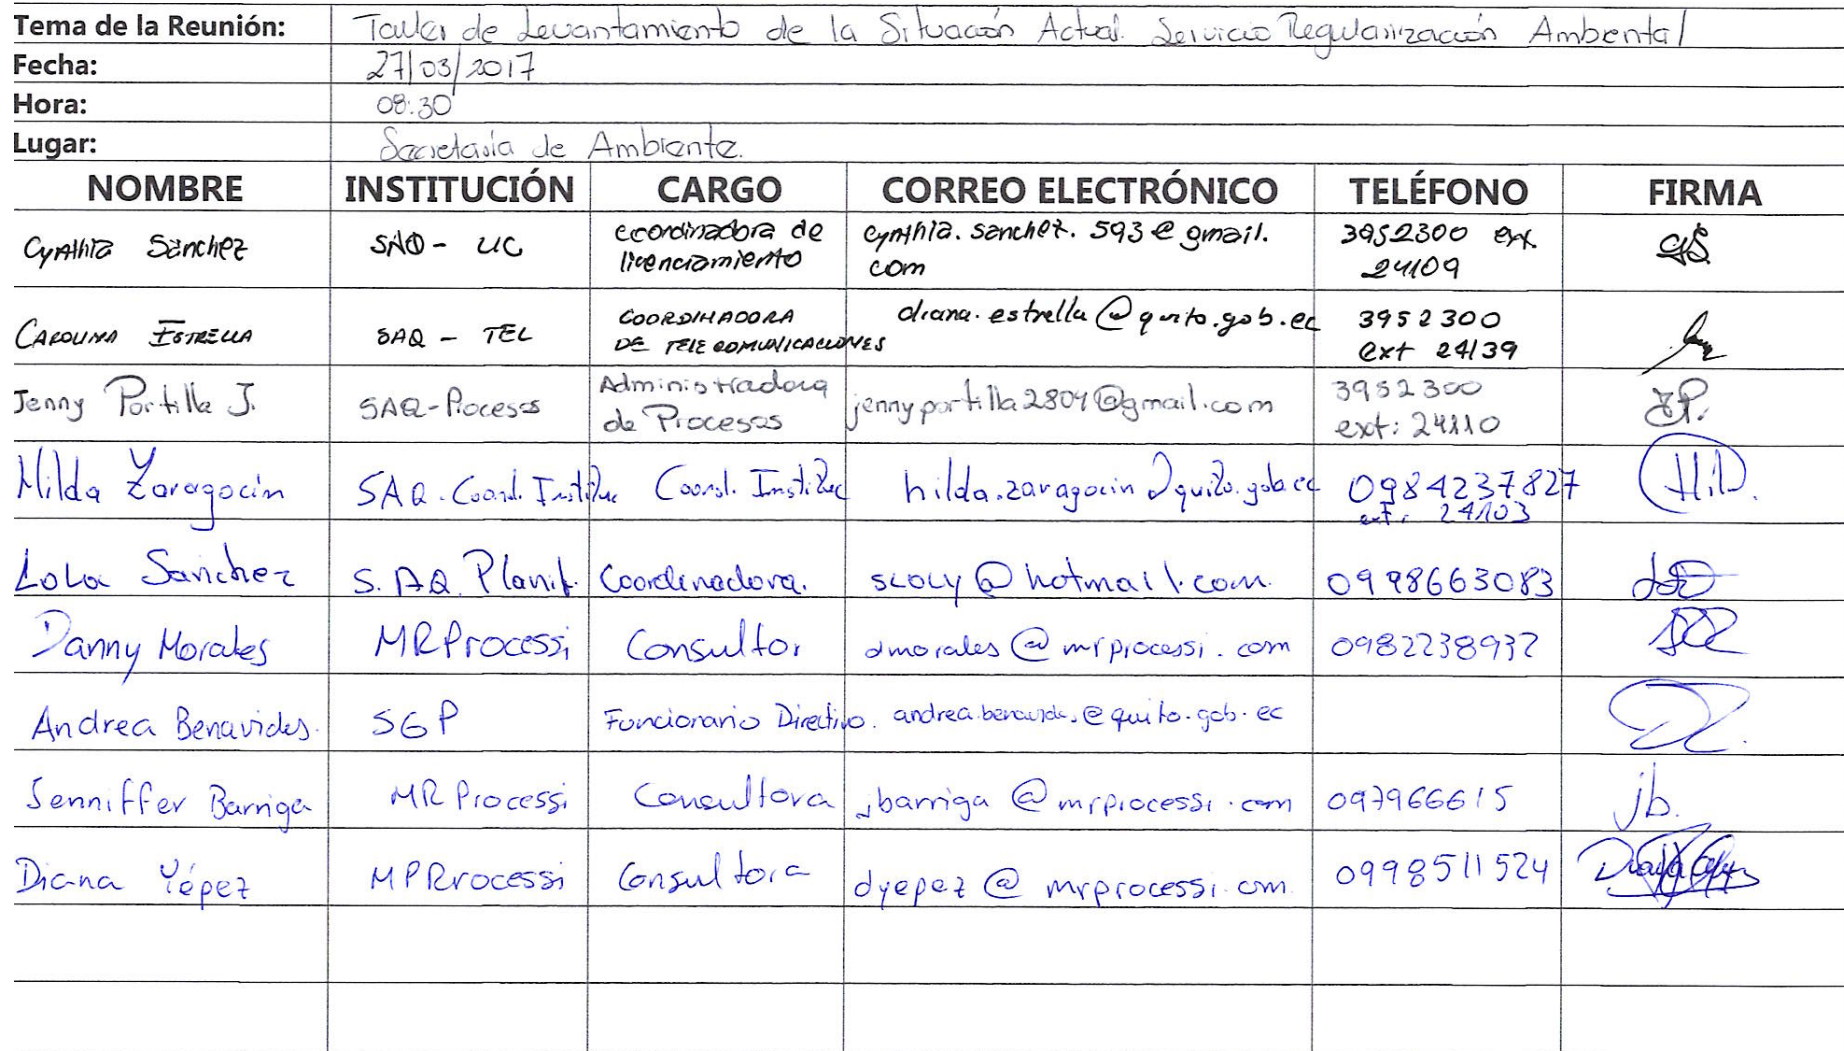 Tema de la Reunión: Taller de Levantamiento de la Situación Actual. Servicio Regularización Ambiental
Fecha: 27/03/2017
Hora: 08:30
Lugar: Secretaría de Ambiente.
NOMBRE INSTITUCIÓN CARGO CORREO ELECTRÓNICO TELÉFONO FIRMA
Cynthia Sánchez SAQ - UC coordinadora de licenciamiento cynthia.sanchez.593@gmail.com 3952300 ext. 24109 CS
CAROLINA ESTRELLA SAQ - TEL COORDINADORA DE TELECOMUNICACIONES diana.estrella@quito.gob.ec 3952300 ext 24139
Jenny Portilla J. SAQ-Procesos Administradora de Procesos jennyportilla2804@gmail.com 3952300 ext: 24110 JP.
Hilda Zaragocin SAQ. Coord. Instituc Coord. Instituc hilda.zaragocin@quito.gob.ec 0984237827 ext: 24103
Lola Sánchez S.AQ. Planif. Coordinadora. sloly@hotmail.com. 0998663083
Danny Morales MRProcessi Consultor dmorales@mrprocessi.com 0982238932
Andrea Benavides. SGP Funcionario Directivo. andrea.benavides@quito.gob.ec
Jenniffer Barriga MRProcessi Consultora jbarriga@mrprocessi.com 097966615 jb.
Diana Yépez MPRrocessi Consultora dyepez@mrprocessi.com 0998511524